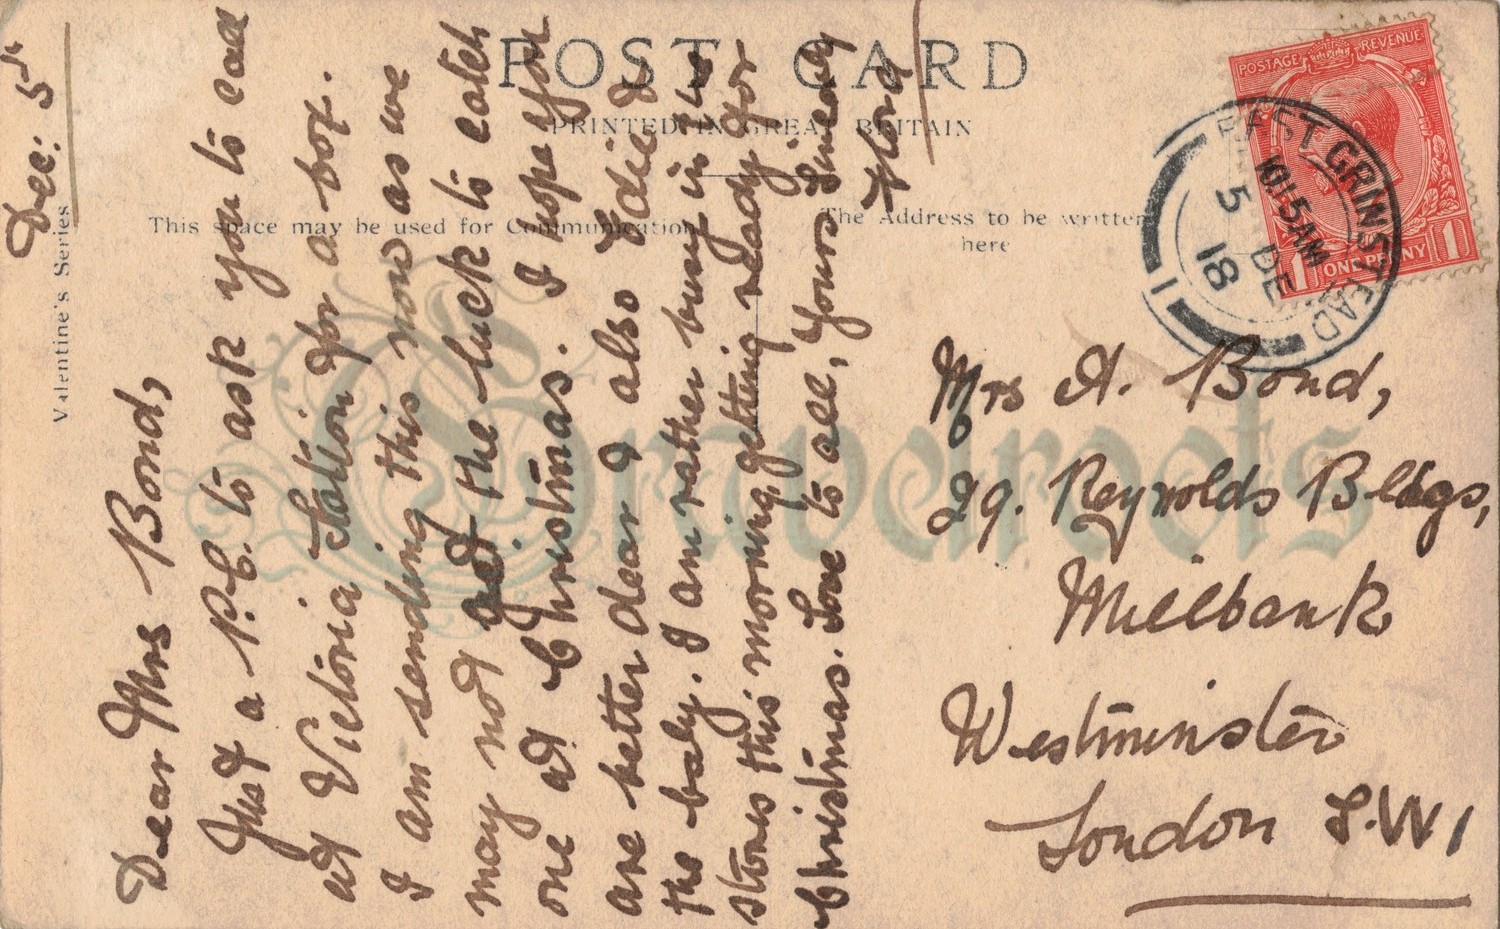 POST CARD
PRINTED IN GREAT BRITAIN
This space may be used for Communication
The Address to be written
here
Valentine's Series
POSTAGE REVENUE
1 ONE PENNY 1
EAST GRINSTEAD
10.15AM
5 DE
18
1
Dec: 5th
Dear Mrs Bond,
Just a P.C. to ask you to call
at Victoria Station for a box.
I am sending this now as we
may not get the luck to catch
one at Christmas. I hope you
are better dear & also Edie &
the baby. I am rather busy in the
stores this morning, getting ready for
Christmas. Love to all, Yours Sincerely
Mrs A. Bond,
29. Reynolds Bldgs,
Millbank
Westminster
London S.W1
Gravelroots